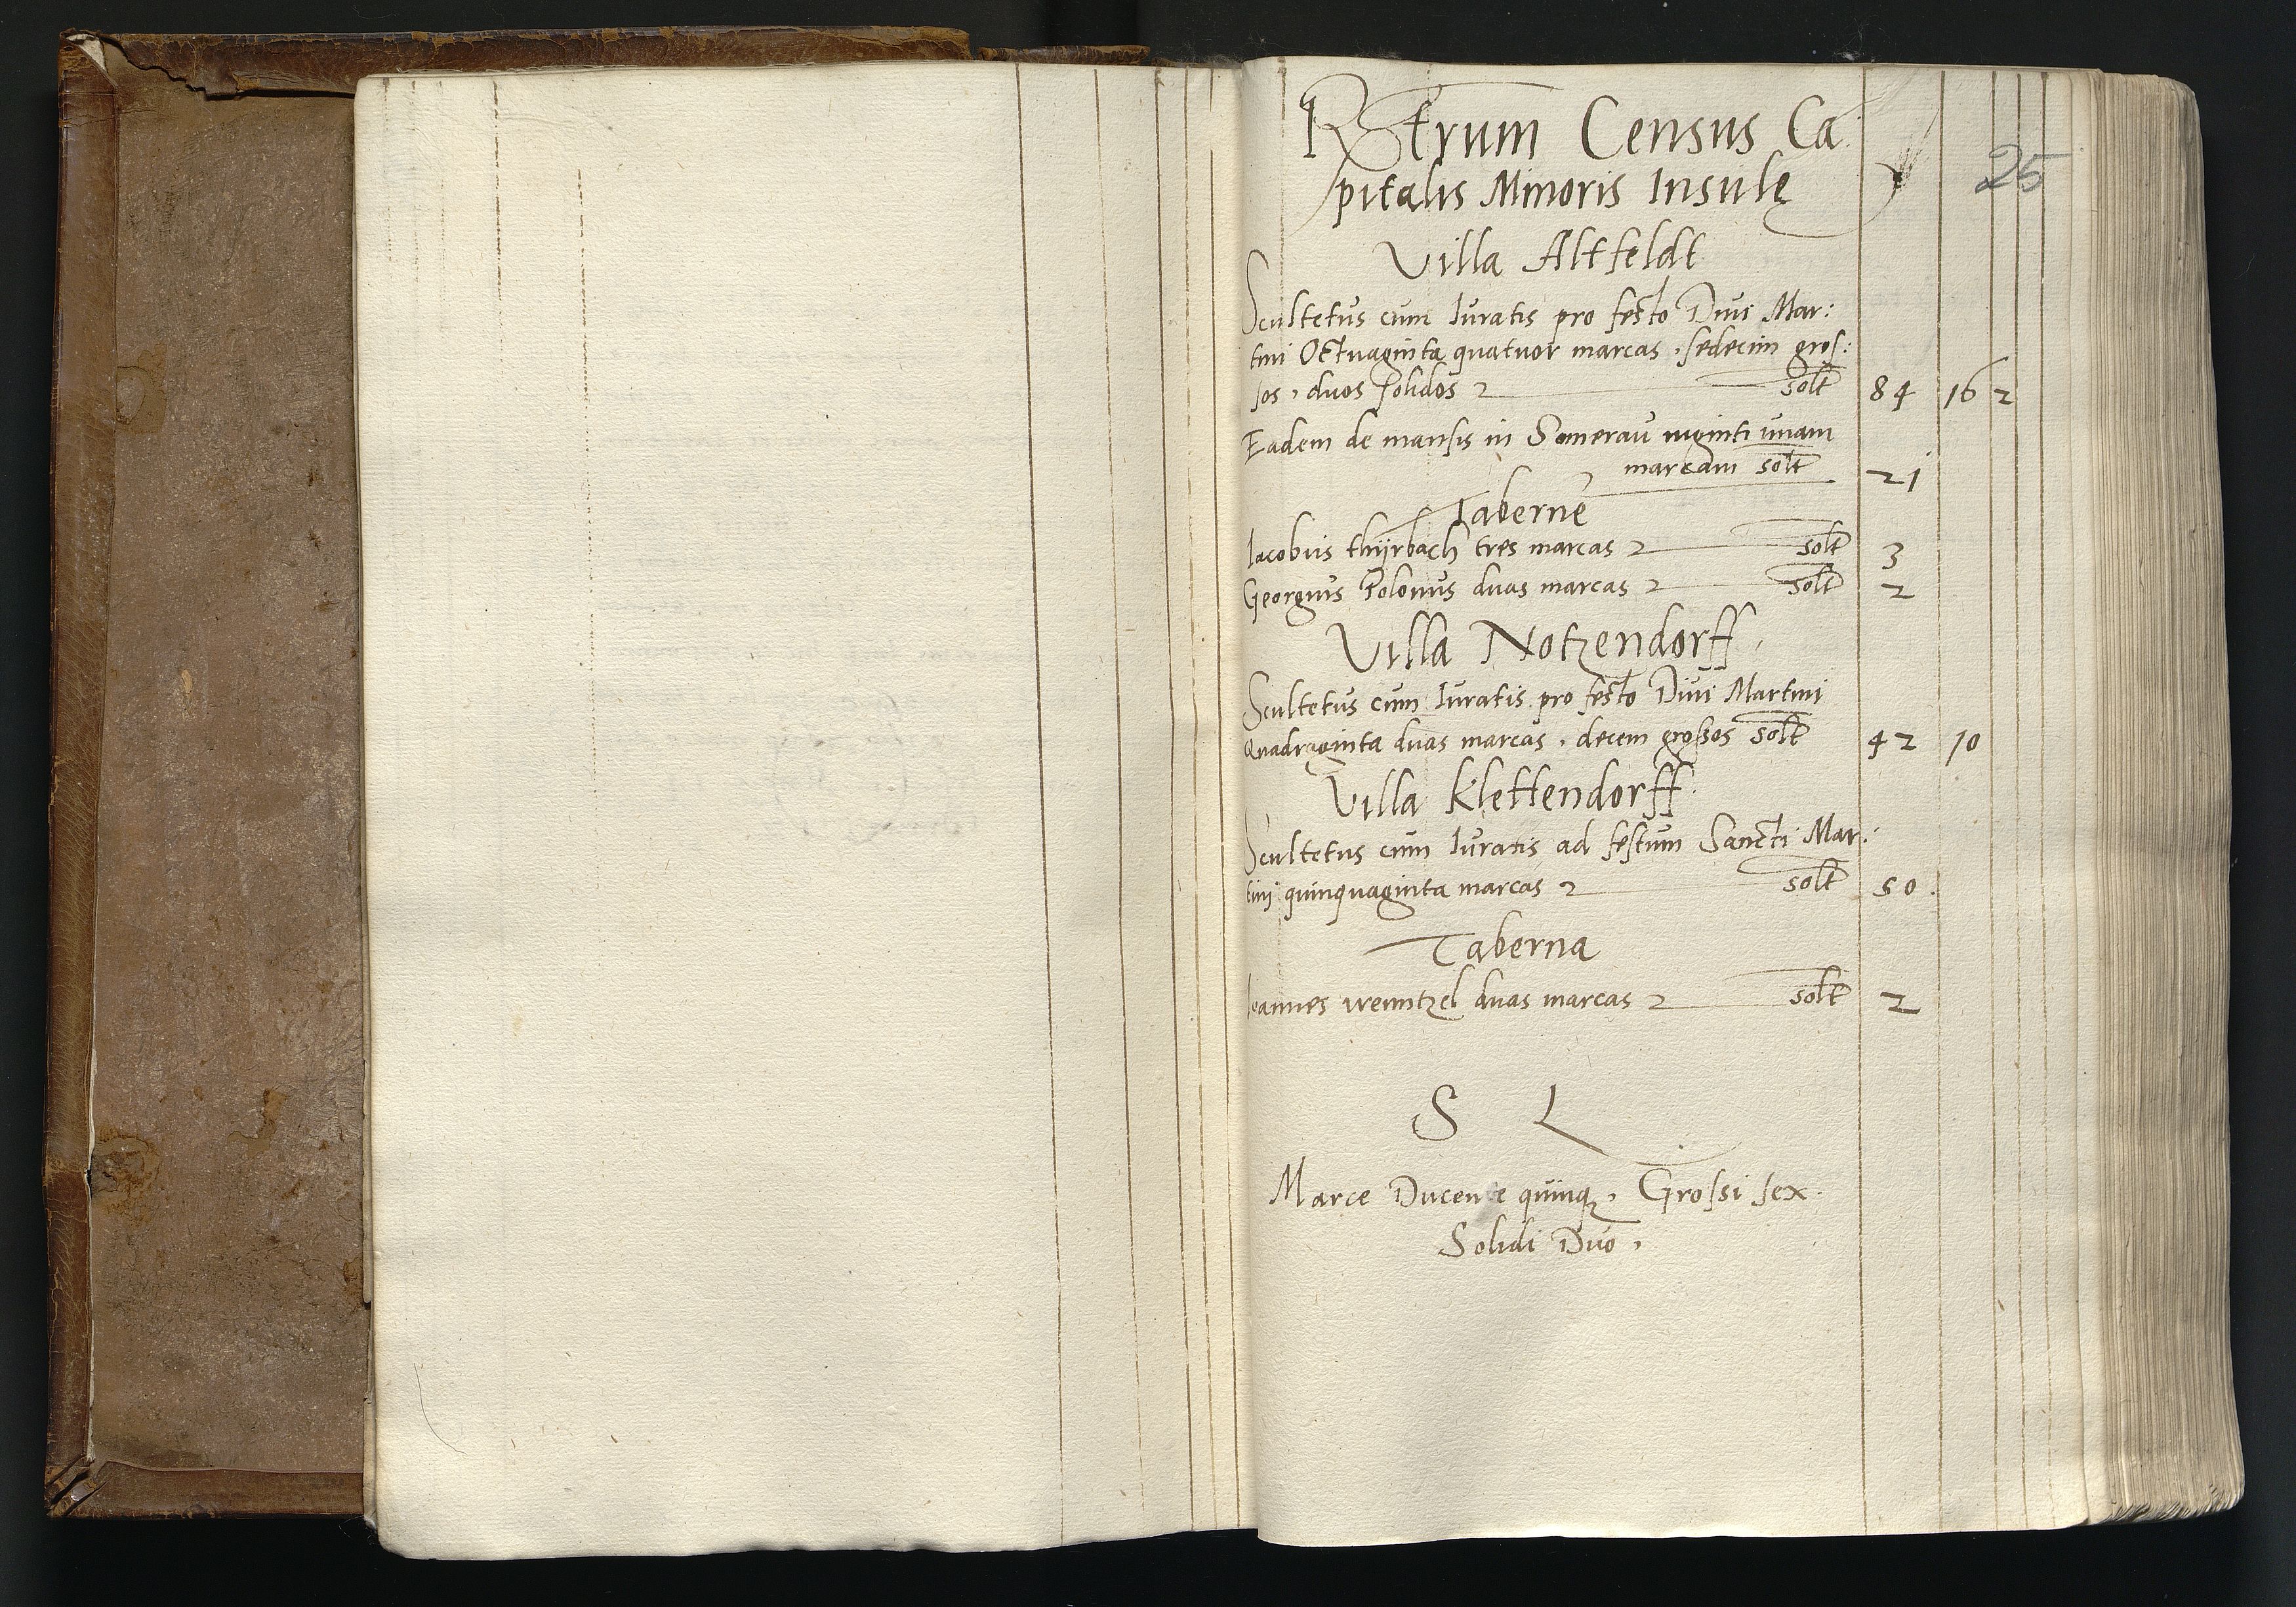 Rtrum Census Ca
pitalis Minoris Insulę
25
Villa Altfeldt
Scultetus cum Iuratis pro festo Diui Mar:
tini Octuaginta quatuor marcas, sedecim gros:
sos, duos solidos solt 84 16 2
Eadem de mansis in Somerau uiginti unam
marcam solt 21
Taberne
Iacobus thijrbach tres marcas solt 3
Georgius Polonus duas marcas solt 2
Villa Notzendorff
Scultetus cum Iuratis pro festo Diui Martini
Quadraginta duas marcas, decem grossos solt 42 10
Villa Klettendorff
Scultetus cum Iuratis ad festum Sancti Mar:
tini quinquaginta marcas solt 50.
Taberna
Ioannes wenntzel duas marcas solt 2
S L
Marce Ducente quinq, Grossi sex.
Solidi Duo,